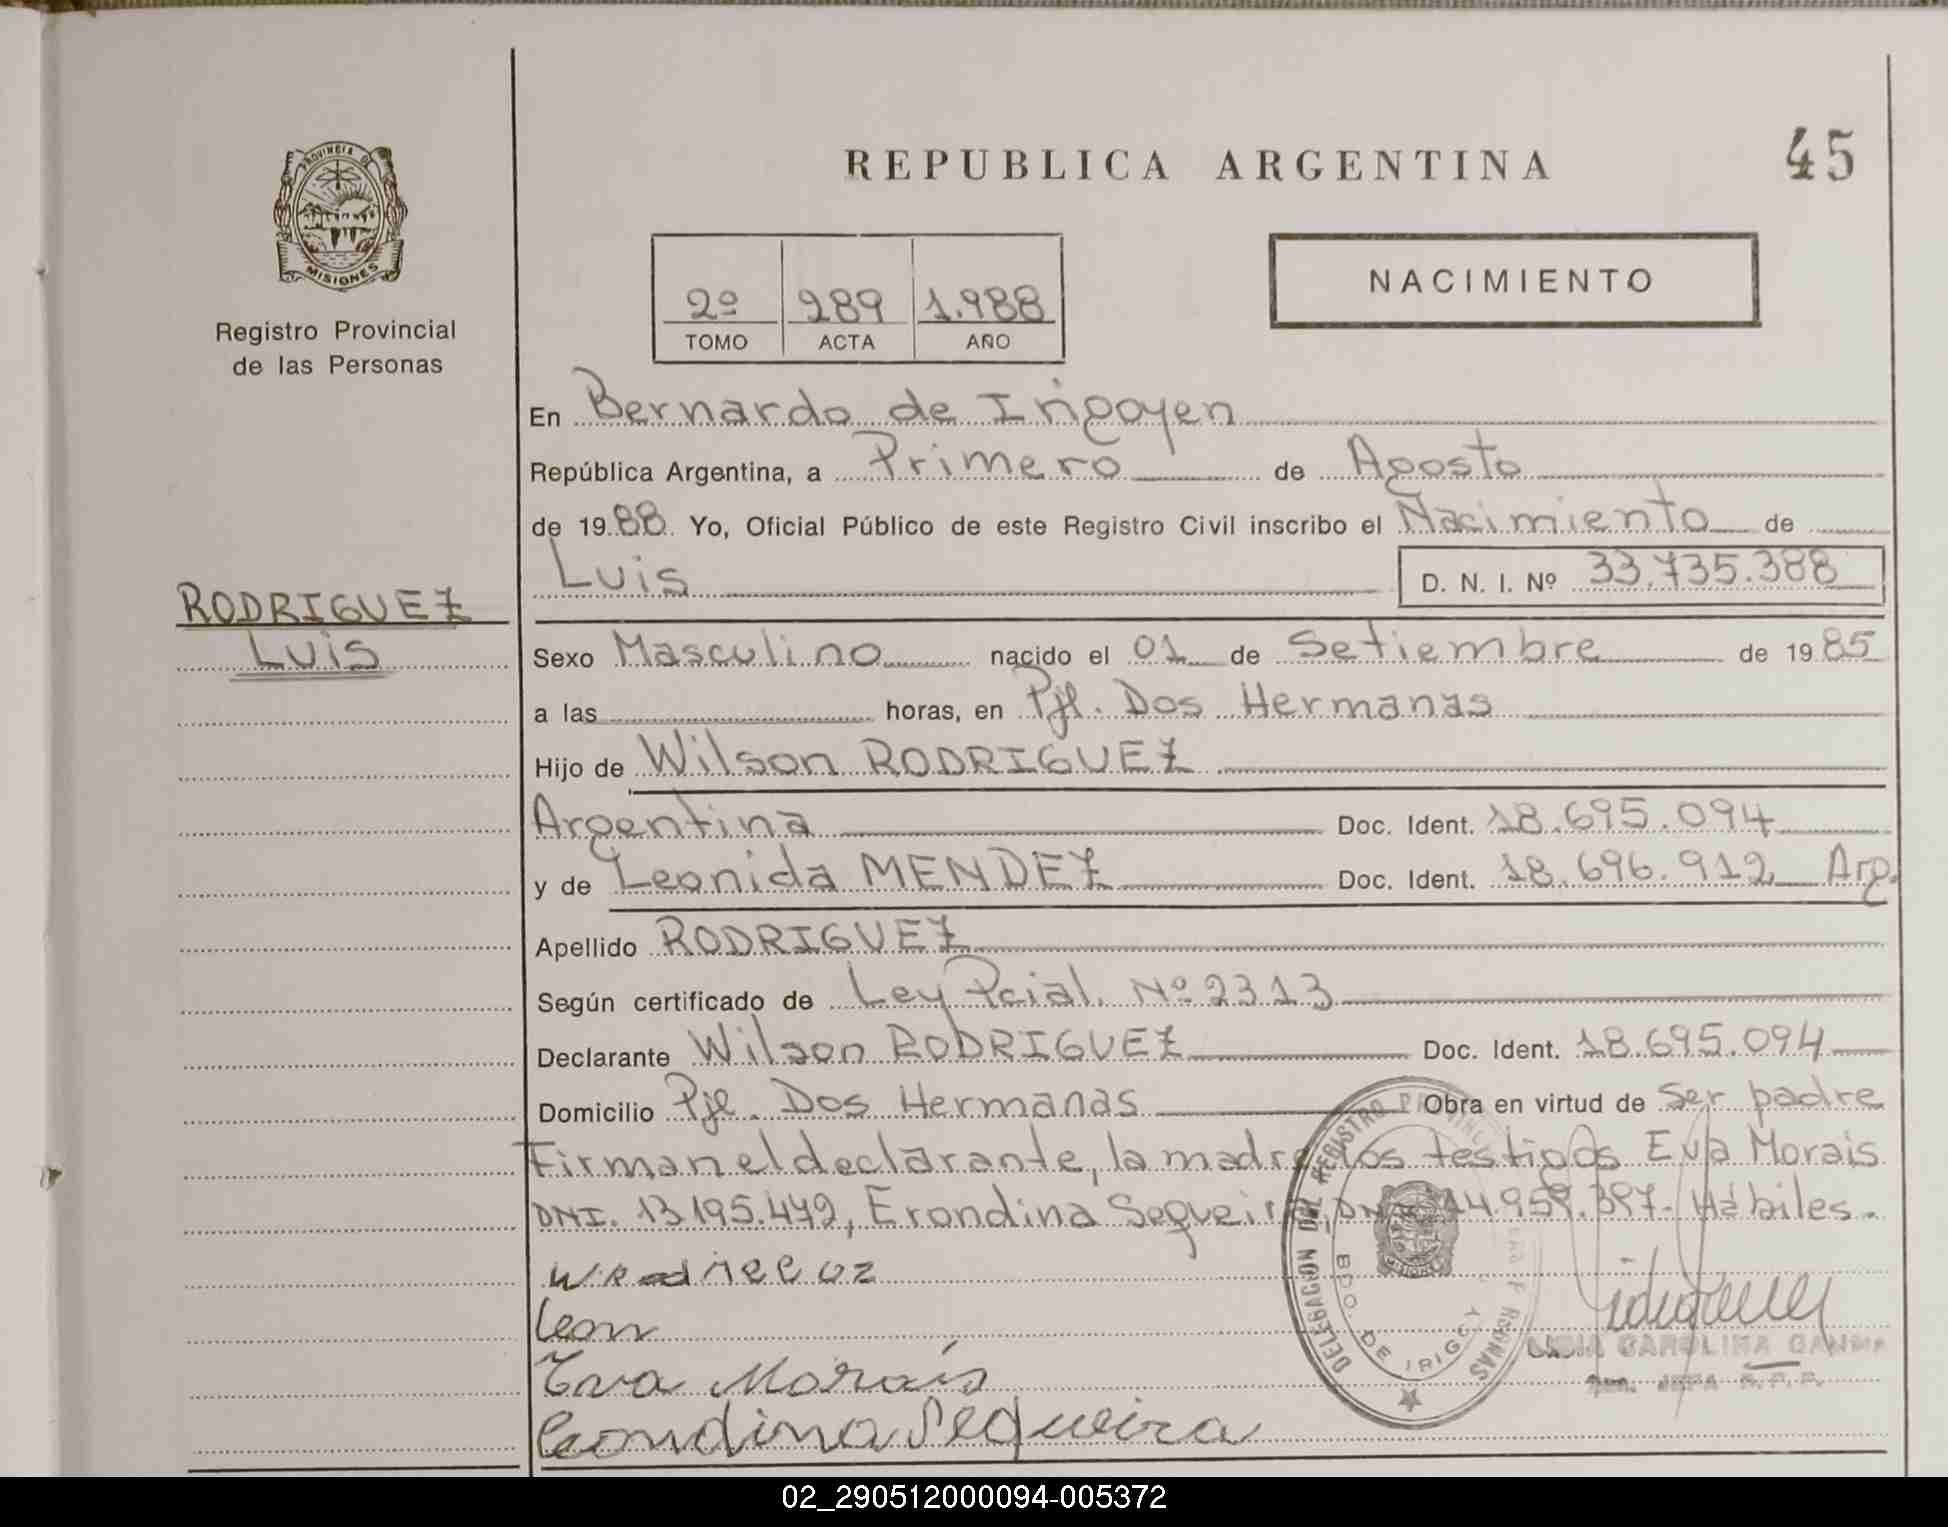 PROVINCIA DE
MISIONES
Registro Provincial
de las Personas
RODRIGUEZ
Luis
REPUBLICA ARGENTINA
45
2º 289 1.988
TOMO ACTA AÑO
NACIMIENTO
En Bernardo de Irigoyen
República Argentina, a Primero de Agosto
de 1988. Yo, Oficial Público de este Registro Civil inscribo el Nacimiento de
Luis D. N. I. Nº 33.735.388
Sexo Masculino nacido el 01 de Setiembre de 1985
a las horas, en Pjl. Dos Hermanas
Hijo de Wilson RODRIGUEZ
Argentina Doc. Ident. 18.695.094
y de Leonida MENDEZ Doc. Ident. 18.696.912 Arg.
Apellido RODRIGUEZ
Según certificado de Ley Pcial. Nº 2313
Declarante Wilson RODRIGUEZ Doc. Ident. 18.695.094
Domicilio Pje. Dos Hermanas Obra en virtud de Ser padre
Firman el declarante, la madre, los testigos Eva Morais
DNI. 13195.442, Erondina Sequeira, DNI. 14.959.397. Hábiles.
Leon
Eva Morais
Erondina Sequeira
DELEGACION DEL REGISTRO PROVINCIAL
BDO. DE IRIGOY
CAROLINA
JEFA R.P.P.
02_290512000094-005372